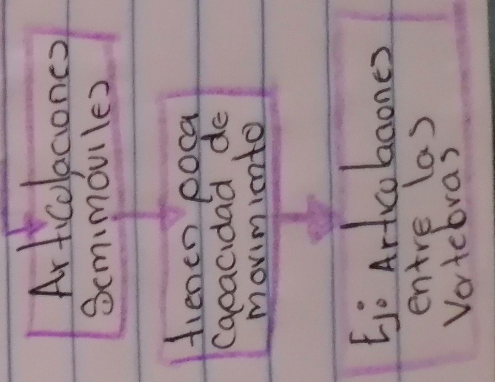 Articulaciones
Semimóviles
tienen poca
capacidad de
movimiento
Ej: Articulaciones
entre las
Vertebras